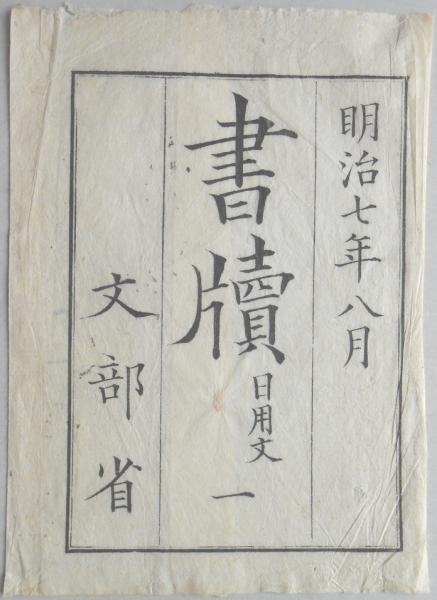 明治七年八月
書牘 日用文 一
文部省